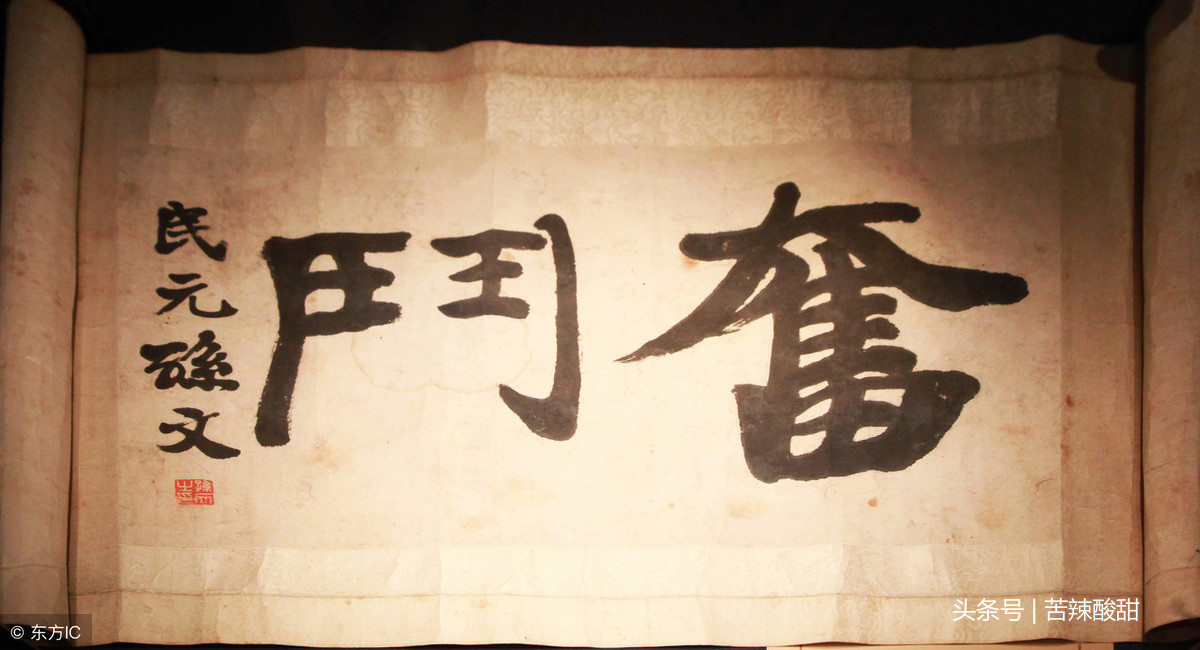 奮鬥
民元孫文
孫文之印
头条号 | 苦辣酸甜
© 东方IC